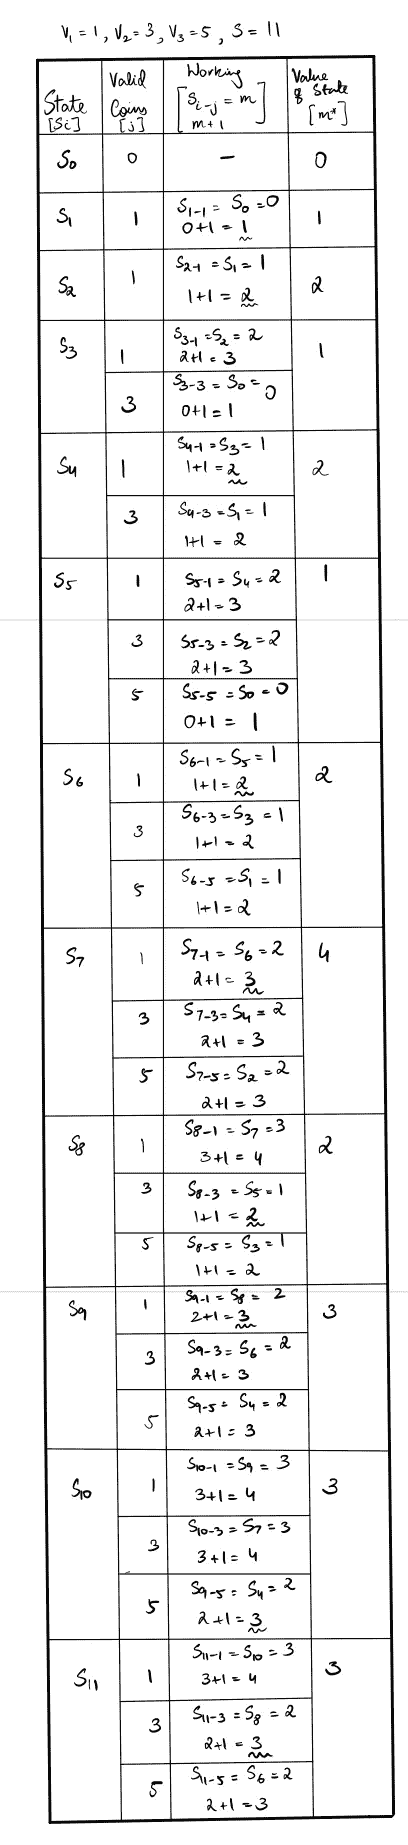 V₁ = 1, V₂ = 3, V₃ = 5, S = 11
State [Si] Valid Coins [j] Working [Si-j = m m+1] Value of State [m*]
S₀ 0 – 0
S₁ 1 S₁₋₁ = S₀ = 0 1
0+1 = 1
S₂ 1 S₂₋₁ = S₁ = 1 2
1+1 = 2
S₃ 1 S₃₋₁ = S₂ = 2 1
2+1 = 3
3 S₃₋₃ = S₀ = 0
0+1 = 1
S₄ 1 S₄₋₁ = S₃ = 1 2
1+1 = 2
3 S₄₋₃ = S₁ = 1
1+1 = 2
S₅ 1 S₅₋₁ = S₄ = 2 1
2+1 = 3
3 S₅₋₃ = S₂ = 2
2+1 = 3
5 S₅₋₅ = S₀ = 0
0+1 = 1
S₆ 1 S₆₋₁ = S₅ = 1 2
1+1 = 2
3 S₆₋₃ = S₃ = 1
1+1 = 2
5 S₆₋₅ = S₁ = 1
1+1 = 2
S₇ 1 S₇₋₁ = S₆ = 2 4
2+1 = 3
3 S₇₋₃ = S₄ = 2
2+1 = 3
5 S₇₋₅ = S₂ = 2
2+1 = 3
S₈ 1 S₈₋₁ = S₇ = 3 2
3+1 = 4
3 S₈₋₃ = S₅ = 1
1+1 = 2
5 S₈₋₅ = S₃ = 1
1+1 = 2
S₉ 1 S₉₋₁ = S₈ = 2 3
2+1 = 3
3 S₉₋₃ = S₆ = 2
2+1 = 3
5 S₉₋₅ = S₄ = 2
2+1 = 3
S₁₀ 1 S₁₀₋₁ = S₉ = 3 3
3+1 = 4
3 S₁₀₋₃ = S₇ = 3
3+1 = 4
5 S₉₋₅ = S₄ = 2
2+1 = 3
S₁₁ 1 S₁₁₋₁ = S₁₀ = 3 3
3+1 = 4
3 S₁₁₋₃ = S₈ = 2
2+1 = 3
5 S₁₁₋₅ = S₆ = 2
2+1 = 3